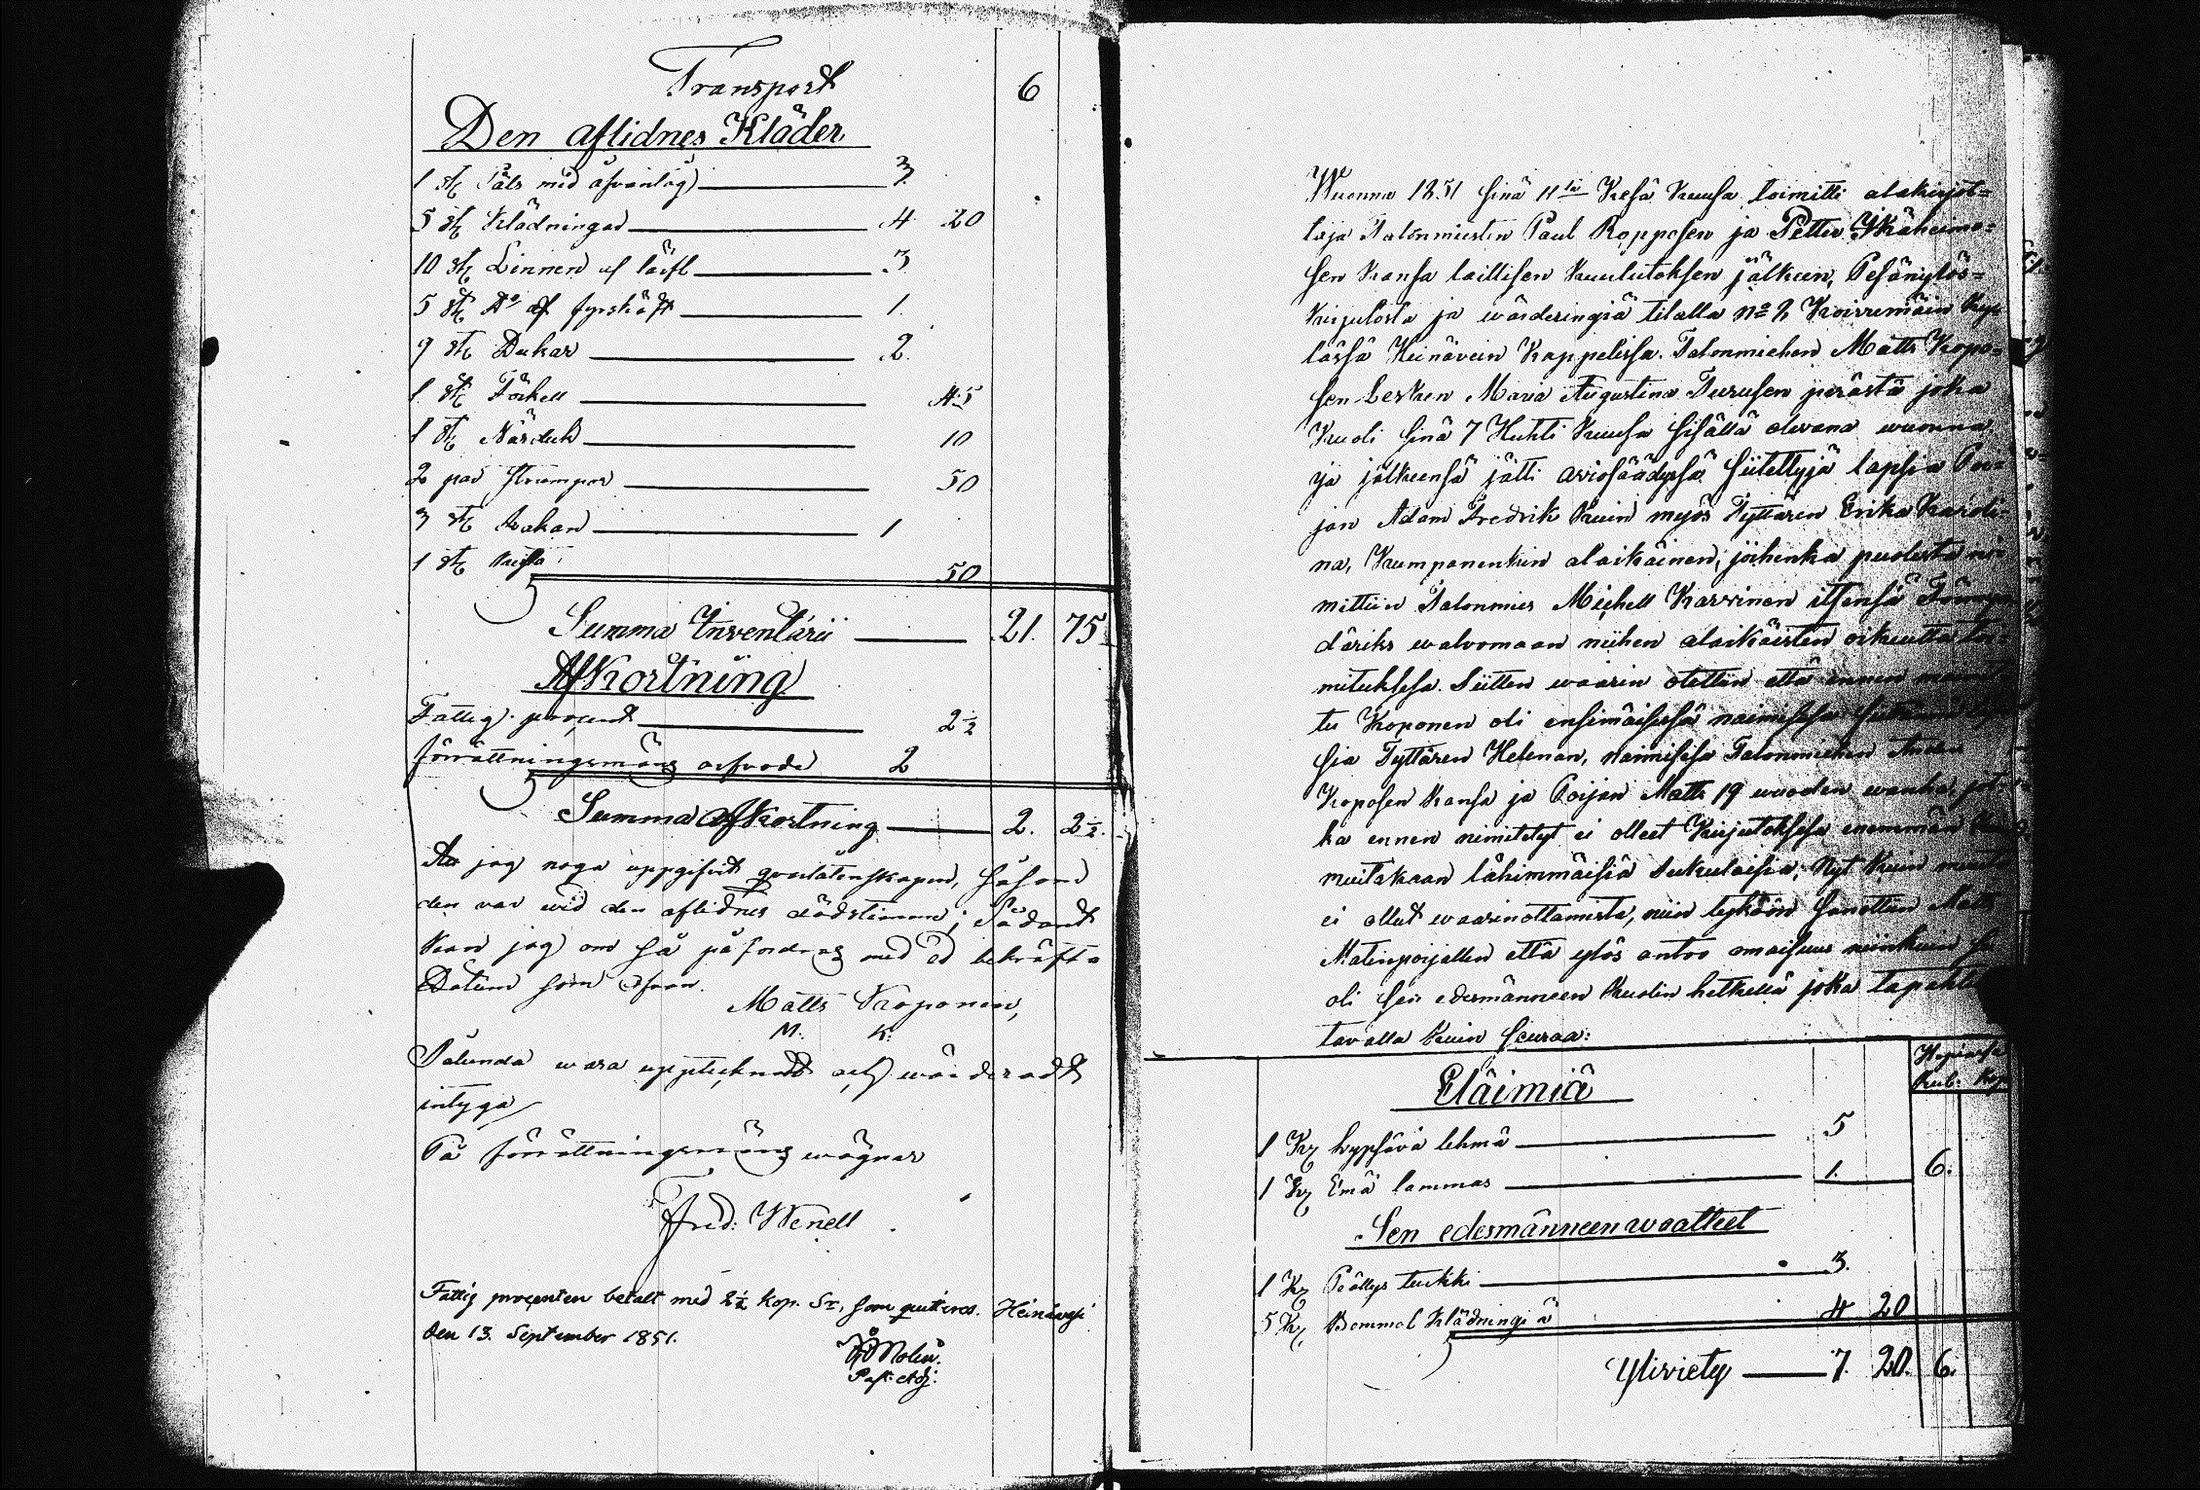 Transport 6
Den aflidnes Kläder
1 st. Päls med 3.
5 st. Klädningar 4 20
10 st. Linnen af lärft 3.
5 st. Do af fyrskäft 1.
9 st. Dukar 2.
1 st. 45
1 st. Näsduk 10
2 par Strumpor 50
3 st. 1
1 st. 50
Summa Inventarii 21. 75
Afkortning
Fattig procent 2½
förrättningsmäns arfvode 2
Summa afkortning 2. 2½.
Att jag noga uppgifvit qvarlåtenskapen, såsom
den var wid den aflidnes dödstimma; Sådant
kan jag om så påfordras med ed bekräfta
Datum som ofvan.
Matts Koponen,
M. K.
Sålunda wara upptecknadt och wärderadt
intyga
På förrättningsmäns wägnar
Fred: Wenell
Fattig procenten betalt med 2½ kop. Sr, som qvitteras. Heinävesi
den 13. September 1851.
Molin.
Past: Adj:
Wuonna 1851 sinä 11tä Kesä kuusa toimitti alakirjot=
taja Talonmiesten Paul Kopposen ja Petter Ikäheimo=
sen kansa laillisen kuulutoksen jälkeen, Pesänylös=
kirjutosta ja wärderingiä tilalla No 2 Koirumäin ky=
lässä Heinävein Kappelissa. Talonmiehen Matts Kopo=
sen Lesken Maria Augustina Turusen perästä joka
kuoli sinä 7 Huhti kuusa sisällä olevana wuonna,
ja jälkeensä jätti aviosäädyssä siitettyjä lapsia Poi=
jan Adam Fredrik kuin myös Tyttären Erika Karoli=
na, kumpanenkin alaikäinen, joihenka puolesta ni=
mittiin Talonmies Michell Karvinen itsensä
däriks walvomaan niihen alaikäisten oikeutta toi=
mituksesa. Siitten waarin otettiin että ennen
tu Koponen oli ensimäisessä naimisessa
sia Tyttären Helenan, naimisesa Talonmiehen
Koposen kansa ja Poijan Matts 19 wuoden wanha, jot=
ka ennen nimitetyt ei olleet kirjutoksesa enemmän
muitakaan lähimmäisiä sukulaisia; Nyt kuin muuta
ei ollut waarinottamista, niin lyköön sanottiin Matts
Matinpoijallen että ylös antoo omaisuus niinkuin se
oli sen edesmänneen kuolin hetkellä joka tapahtu
tavalla kuin seuraa:
Hopiassa
Rub: Kop
Eläimiä
1 K. lypsävä lehmä 5
1 K. Emä lammas 1. 6.
Sen edesmänneen waatteet
1 K. Päällys turkki 3.
5 K. Bommol klädningiä 4 20
Yliviety 7. 20. 6.